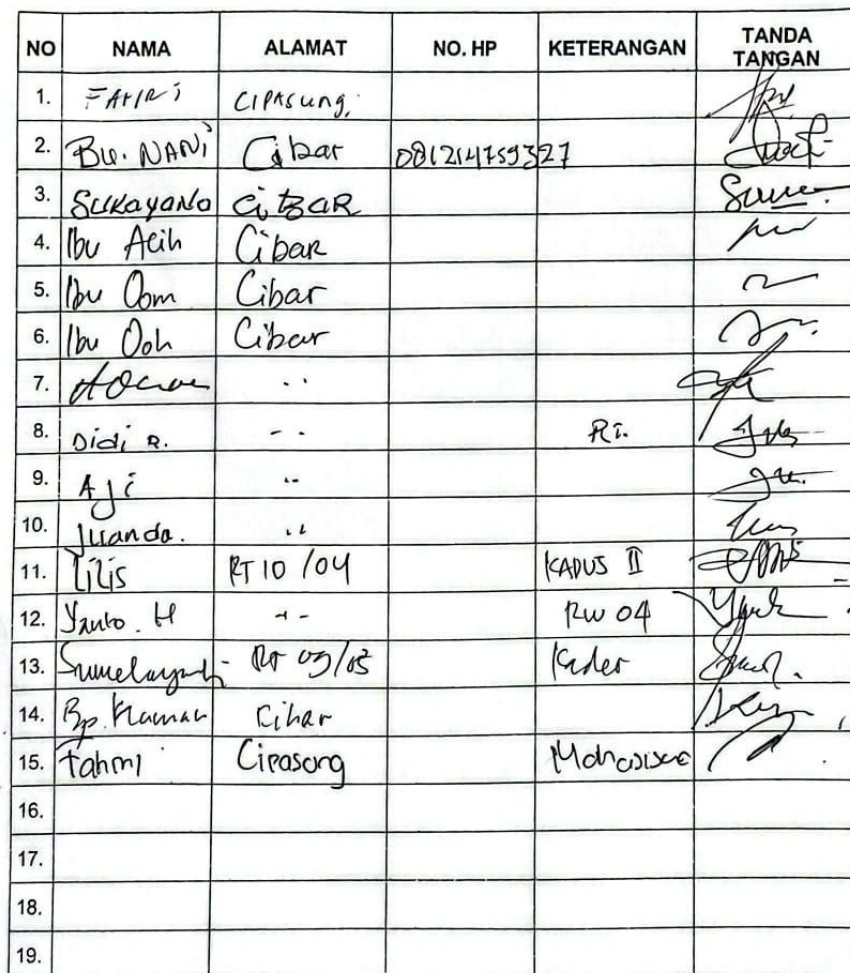 NO NAMA ALAMAT NO. HP KETERANGAN TANDA TANGAN
1. FAHRI CIPASUNG.
2. Bu. NANi Cibar 081214759327
3. Sukayanto CiBAR
4. Ibu Acih CibaR
5. Ibu Oom Cibar
6. Ibu Ooh Cibar
7. "
8. Didi R. " RT.
9. Aji "
10. Juanda. "
11. Lilis RT 10 /04 KADUS II
12. Yanto. H " RW 04
13. RT 03/03 Kader
14. Bp. Cibar
15. Fahmi Cipasung Mahasiswa
16.
17.
18.
19.